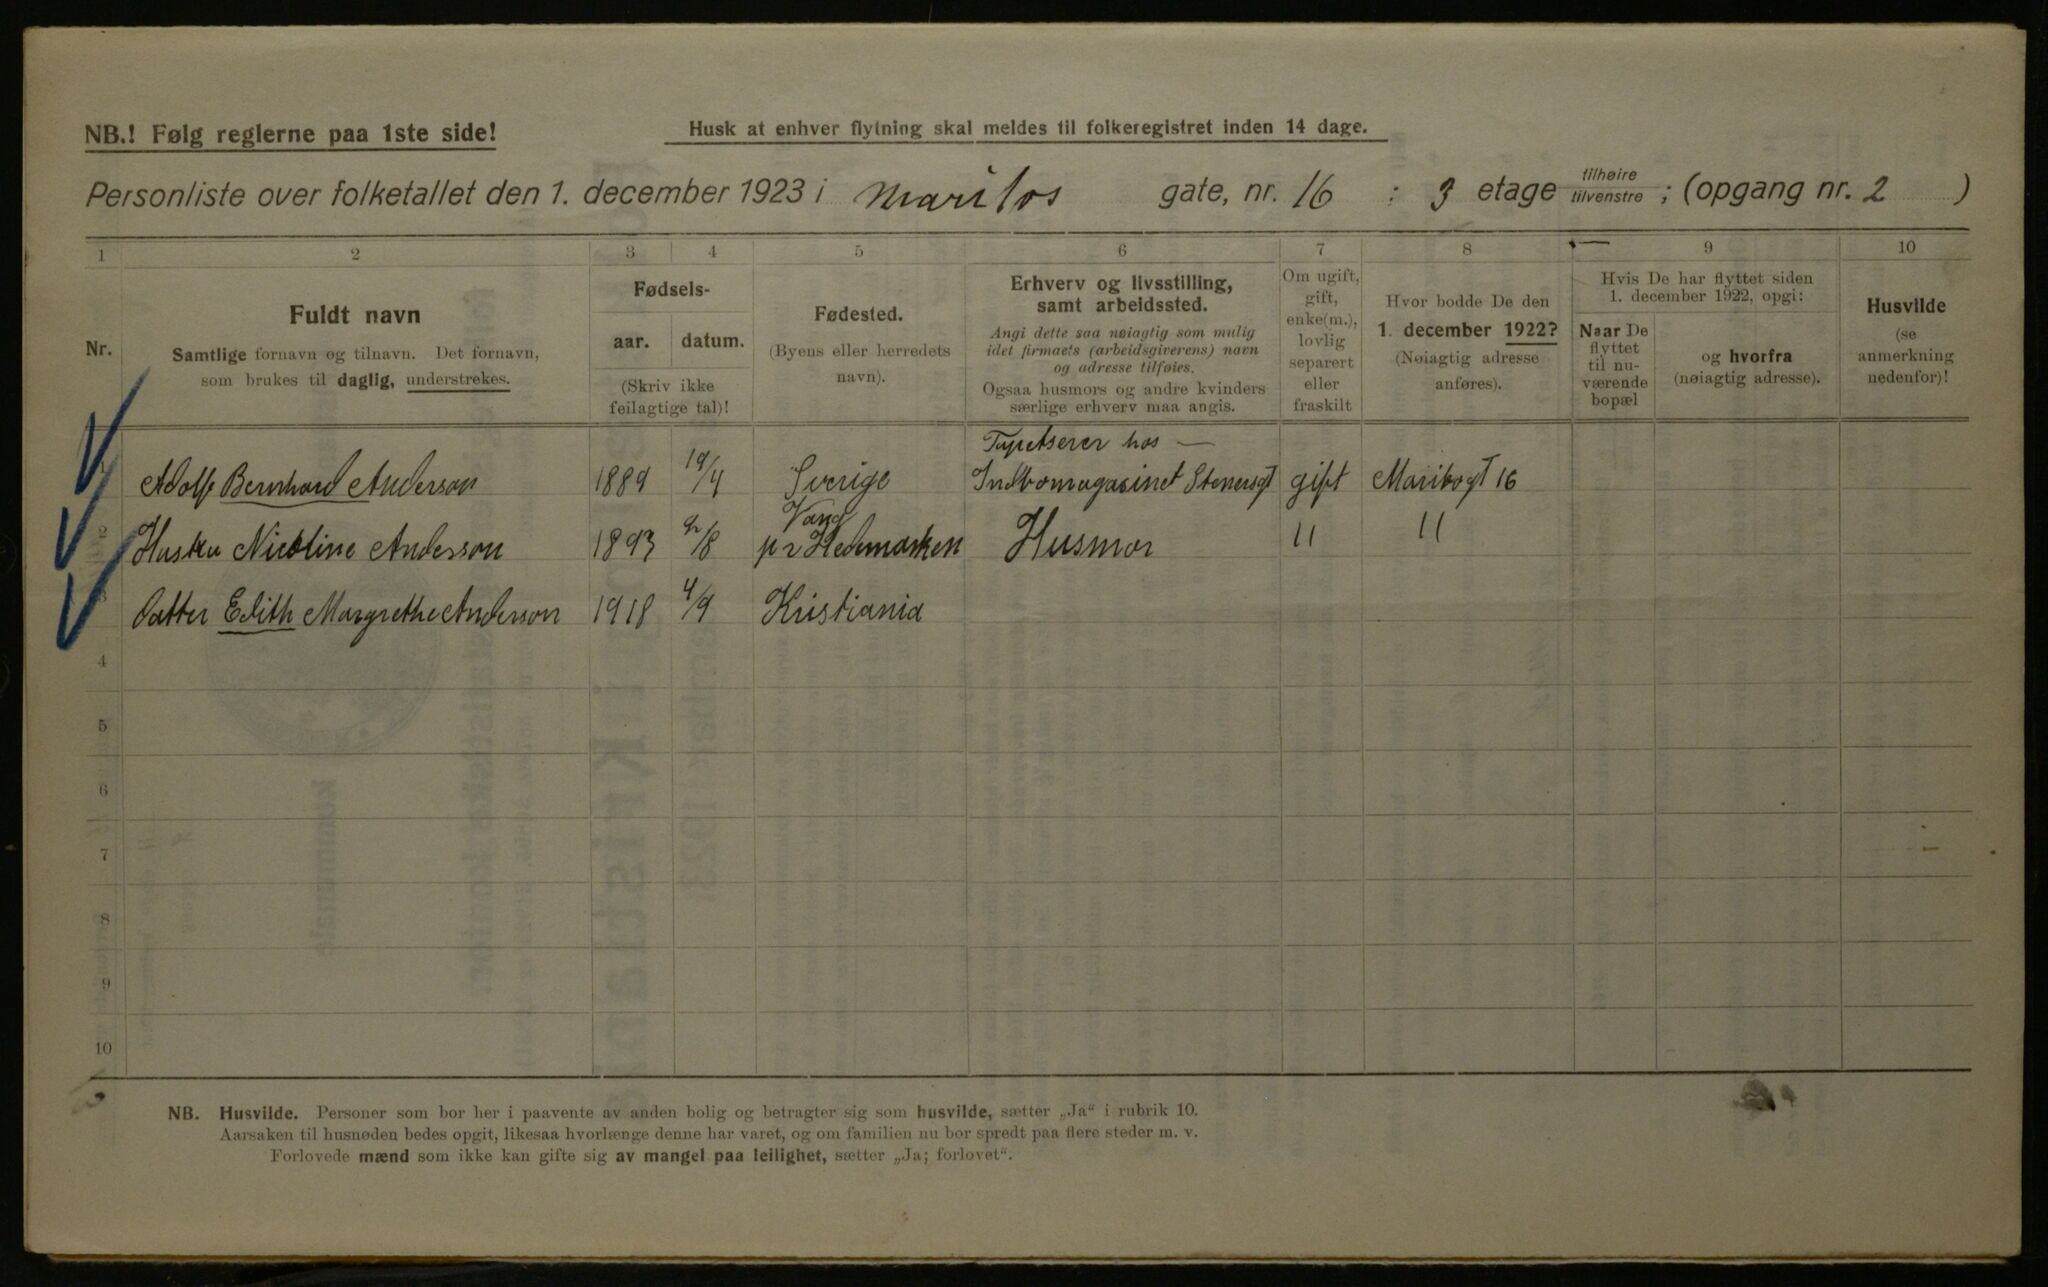 NB.! Følg reglerne paa 1ste side!
Husk at enhver flytning skal meldes til folkeregistret inden 14 dage.
Personliste over folketallet den 1. december 1923 i Maribos gate, nr. 16 : 3 etage tilhøire tilvenstre ; (opgang nr. 2 )
1 2 3 4 5 6 7 8 9 10
Nr.
Fuldt navn
Samtlige fornavn og tilnavn. Det fornavn,
som brukes til daglig, understrekes.
Fødsels-
aar. datum.
(Skriv ikke
feilagtige tal)!
Fødested.
(Byens eller herredets
navn).
Erhverv og livsstilling,
samt arbeidssted.
Angi dette saa nøiagtig som mulig
idet firmaets (arbeidsgiverens) navn
og adresse tilføies.
Ogsaa husmors og andre kvinders
særlige erhverv maa angis.
Om ugift,
gift,
enke(m.),
lovlig
separert
eller
fraskilt
Hvor bodde De den
1. december 1922?
(Nøiagtig adresse
anføres).
Hvis De har flyttet siden
1. december 1922, opgi:
Naar De
flyttet
til nu-
værende
bopæl
og hvorfra
(nøiagtig adresse).
Husvilde
(se
anmerkning
nedenfor)!
Tapetserer hos —
1 Adolf Bernhard Anderson 1889 19/4 Sverige Indbomagasinet Stenersgt gift Maribogt 16
Vang
2 Hustru Nicoline Anderson 1893 2/8 pr Hedemarken Husmor 11 11
3 Datter Edith Margrethe Anderson 1918 4/9 Kristiania
4
5
6
7
8
9
10
NB. Husvilde. Personer som bor her i paavente av anden bolig og betragter sig som husvilde, sætter „Ja“ i rubrik 10.
Aarsaken til husnøden bedes opgit, likesaa hvorlænge denne har varet, og om familien nu bor spredt paa flere steder m. v.
Forlovede mænd som ikke kan gifte sig av mangel paa leilighet, sætter „Ja; forlovet“.